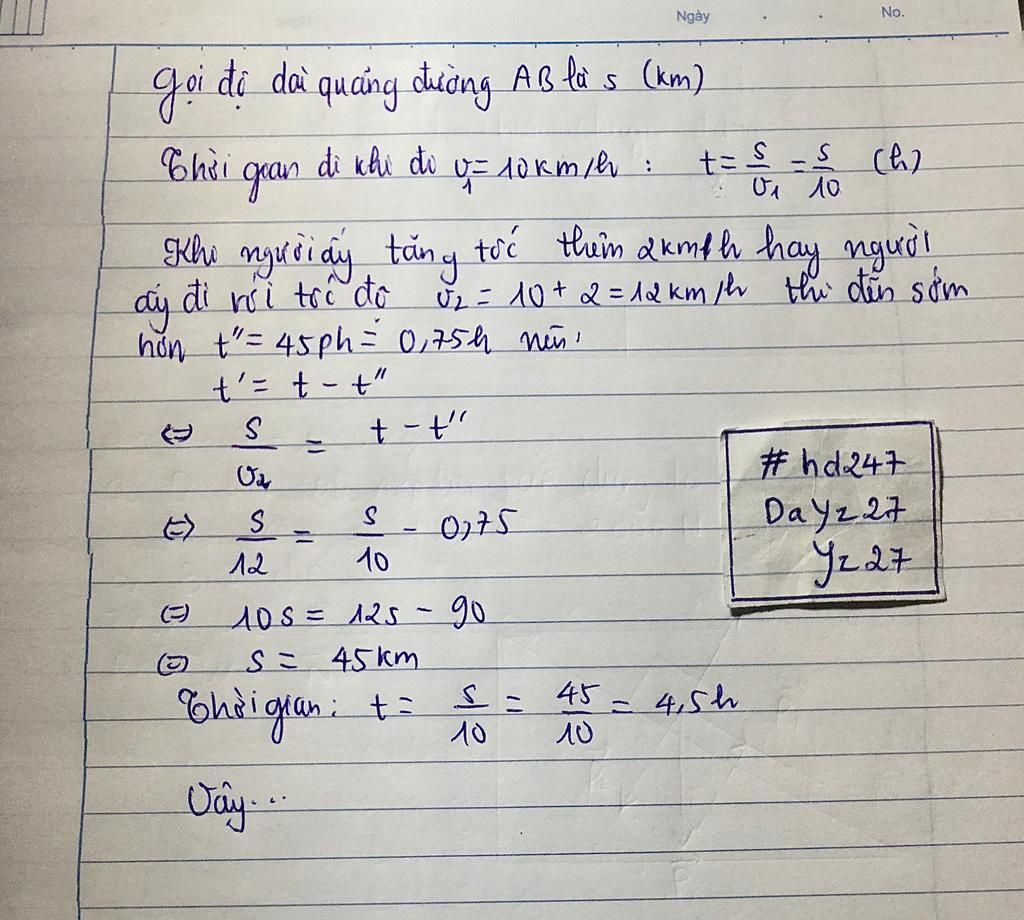 Ngày . . No.
Gọi độ dài quãng đường AB là s (km)
Thời gian đi khi đó v₁ = 10km/h : t = s/v₁ = s/10 (h)
Khi người ấy tăng tốc thêm 2km/h hay người
ấy đi với tốc độ v₂ = 10 + 2 = 12km/h thì đến sớm
hơn t'' = 45ph = 0,75h nên:
t' = t - t''
⇔ s/v₂ = t - t''
⇔ s/12 = s/10 - 0,75
⇔ 10s = 12s - 90
⇔ s = 45km
Thời gian: t = s/10 = 45/10 = 4,5h
Vậy...
# hd247
DaYz27
Yz27